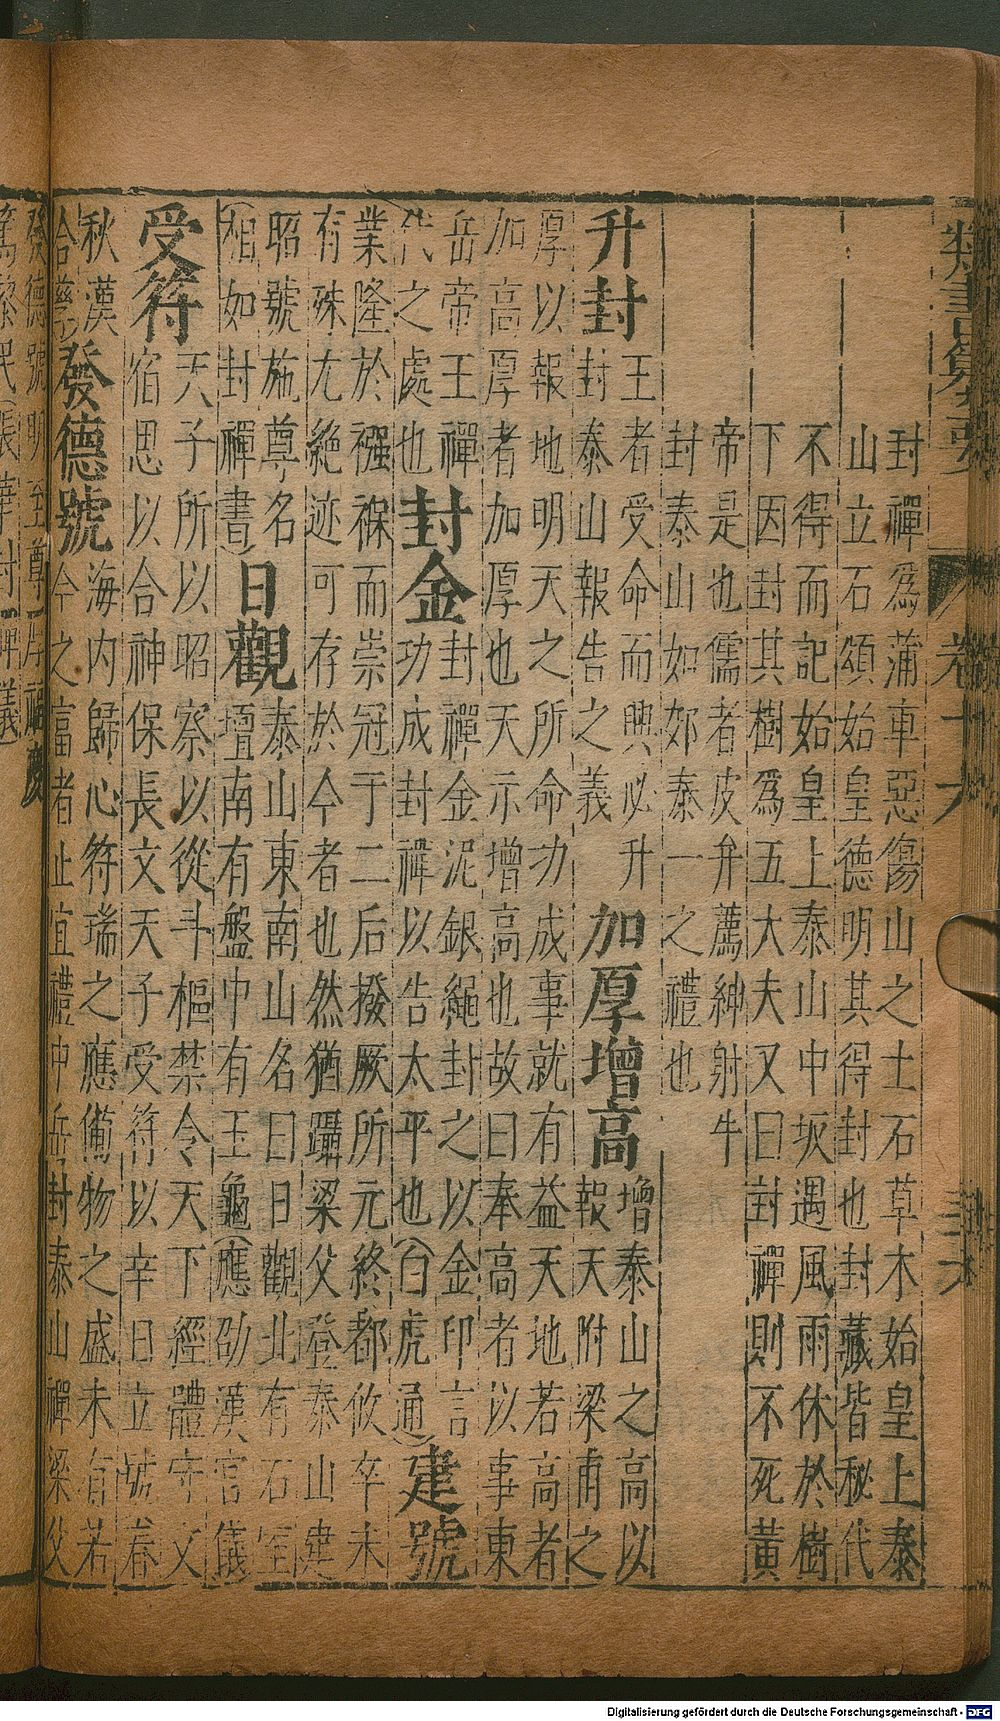 卷十六
封禪爲蒲車惡傷山之土石草木始皇上泰
山立石頌始皇德明其得封也封藏皆秘代
不得而記始皇上泰山中坂遇風雨休於樹
下因封其樹爲五大夫又曰封禪則不死黃
帝是也儒者皮弁薦紳射牛
封泰山如郊泰一之禮也
升封
王者受命而興必升
封泰山報告之義
加厚增高
增泰山之高以
報天附梁甫之
厚以報地明天之所命功成事就有益天地若高者
加高厚者加厚也天示增高也故曰奉高者以事東
岳帝王禪
代之處也
封金
封禪金泥銀繩封之以金印言
功成封禪以告太平也(白虎通)
建號
業隆於襁褓而崇冠于二后撥厥所元終都攸卒未
有殊尤絶迹可存於今者也然猶躡梁父登泰山建
昭號施尊名
(相如封禪書)
日觀
泰山東南山名曰日觀北有石室
壇南有盤中有玉龜(應劭漢官儀
受符
天子所以昭察以從斗樞禁令天下經體守文
宿思以合神保長文天子受符以辛日立號春
秋漢
合孳)
發德號
海内歸心符瑞之應備物之盛未有若
今之富者止宜禮中岳封泰山禪梁父
發德號明至尊
(張華封禪議)
Digitalisierung gefördert durch die Deutsche Forschungsgemeinschaft - DFG